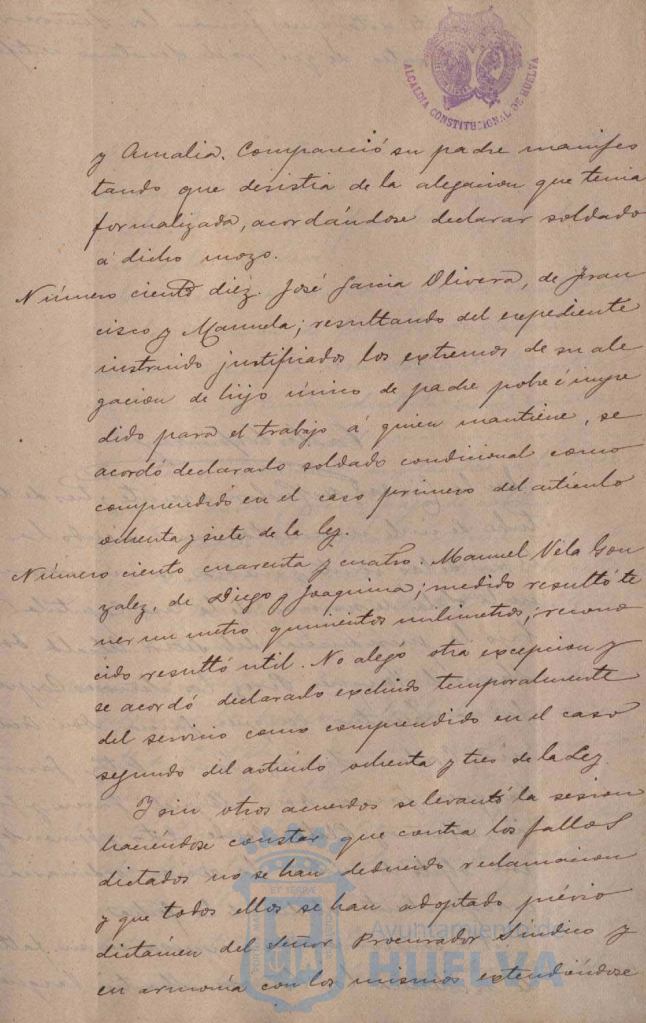 ALCALDIA CONSTITUCIONAL DE HUELVA
y Amalia. Compareció su padre manifes
tando que desistia de la alegacion que tenia
formalizada, acordándose declarar soldado
á dicho mozo.
Número ciento diéz. José Garcia Olivera, de Fran
cisco y Manuela; resultando del expediente
instruido justificados los extremos de su ale
gacion de hijo único de padre pobre é impe
dido para el trabajo á quien mantiene, se
acordó declararlo soldado condicional como
comprendido en el caso primero del artículo
ochenta y siete de la ley.
Número ciento cuarenta y cuatro. Manuel Vela Gon
zalez, de Diego y Joaquina; medido resultó te
ner un metro quinientos milimetros; recono
cido resultó util. No alegó otra excepcion y
se acordó declararlo excluido temporalmente
del servicio como comprendido en el caso
segundo del artículo ochenta y tres de la Ley.
Y sin otros acuerdos se levantó la sesion
haciéndose constar que contra los fallos
dictados no se han deducido reclamacion
y que todos ellos se han adoptado prévio
dictámen del Señor Procurador Síndico y
en armonía con los mismos extendiéndose
Ayuntamiento de
HUELVA